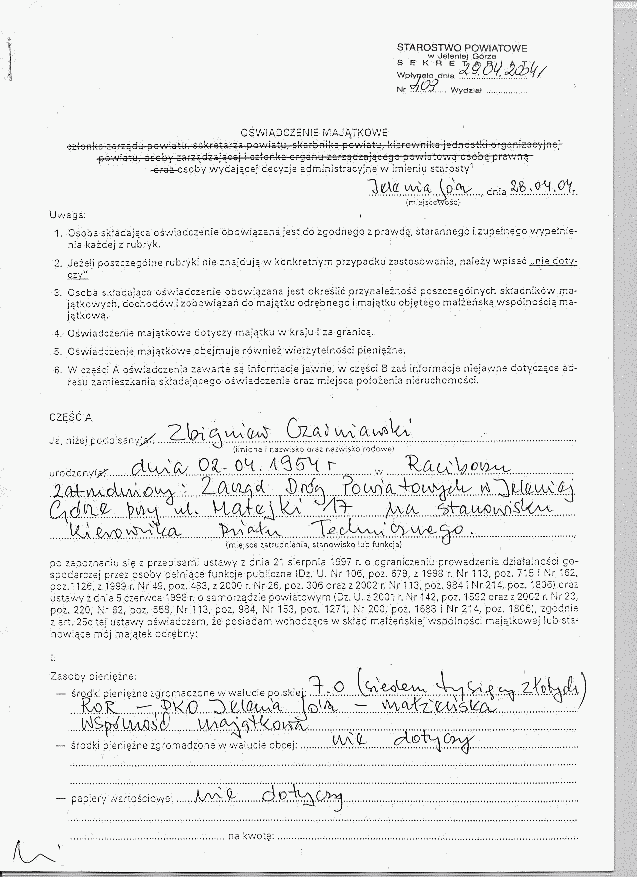 STAROSTWO POWIATOWE
w Jeleniej Górze
S E K R E T A R I A T
Wpłynęło dnia 29.04.2004
Nr 403 Wydział
OŚWIADCZENIE MAJĄTKOWE
członka zarządu powiatu, sekretarza powiatu, skarbnika powiatu, kierownika jednostki organizacyjnej
powiatu, osoby zarządzającej i członka organu zarządzającego powiatową osobą prawną
oraz osoby wydającej decyzje administracyjne w imieniu starosty¹
Jelenia Góra, dnia 28.04.04.
(miejscowość)
Uwaga:
1. Osoba składająca oświadczenie obowiązana jest do zgodnego z prawdą, starannego i zupełnego wypełnie-
nia każdej z rubryk.
2. Jeżeli poszczególne rubryki nie znajdują w konkretnym przypadku zastosowania, należy wpisać „nie doty-
czy"
3. Osoba składająca oświadczenie obowiązana jest określić przynależność poszczególnych składników ma-
jątkowych, dochodów i zobowiązań do majątku odrębnego i majątku objętego małżeńską wspólnością ma-
jątkową.
4. Oświadczenie majątkowe dotyczy majątku w kraju i za granicą.
5. Oświadczenie majątkowe obejmuje również wierzytelności pieniężne.
6. W części A oświadczenia zawarte są informacje jawne, w części B zaś informacje niejawne dotyczące ad-
resu zamieszkania składającego oświadczenie oraz miejsca położenia nieruchomości.
CZĘŚĆ A
Ja, niżej podpisany/a, Zbigniew
(imiona i nazwisko oraz nazwisko rodowe)
urodzony/a dnia 02-04.1954 r w Raciborzu
zatrudniony: Zarząd Dróg Powiatowych w Jeleniej
Górze przy ul. Matejki 17 na stanowisku
Kierownika Działu Technicznego.
(miejsce zatrudnienia, stanowisko lub funkcja)
po zapoznaniu się z przepisami ustawy z dnia 21 sierpnia 1997 r. o ograniczeniu prowadzenia działalności go-
spodarczej przez osoby pełniące funkcje publiczne (Dz. U. Nr 106, poz. 679, z 1998 r. Nr 113, poz. 715 i Nr 162,
poz. 1126, z 1999 r. Nr 49, poz. 483, z 2000 r. Nr 26, poz. 306 oraz z 2002 r. Nr 113, poz. 984 i Nr 214, poz. 1806) oraz
ustawy z dnia 5 czerwca 1998 r. o samorządzie powiatowym (Dz. U. z 2001 r. Nr 142, poz. 1592 oraz z 2002 r. Nr 23,
poz. 220, Nr 62, poz. 558, Nr 113, poz. 984, Nr 153, poz. 1271, Nr 200, poz. 1688 i Nr 214, poz. 1806), zgodnie
z art. 25c tej ustawy oświadczam, że posiadam wchodzące w skład małżeńskiej wspólności majątkowej lub sta-
nowiące mój majątek odrębny:
I.
Zasoby pieniężne:
— środki pieniężne zgromadzone w walucie polskiej: 7.0 (siedem tysięcy złotych)
ROR — PKO Jelenia Góra — małżeńska
wspólność majątkowa
— środki pieniężne zgromadzone w walucie obcej: nie dotyczy
— papiery wartościowe: nie dotyczy
na kwotę: